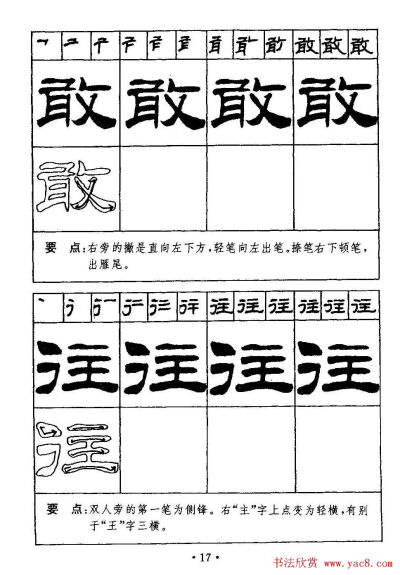 敢 敢 敢
敢 敢 敢 敢
敢
要 点:右旁的撇是直向左下方,轻笔向左出笔。捺笔右下顿笔,
出雁尾。
往 往 往 往 往 往
往 往 往 往
往
要 点:双人旁的第一笔为侧锋。右“主”字上点变为轻横,有别
于“王”字三横。
·17·
书法欣赏 www.yac8.com